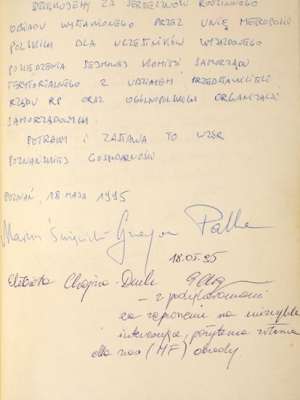 DZIĘKUJEMY ZA SERDECZNOŚĆ RODZINNEGO
OBIADU WYDANEGO PRZEZ UNIĘ METROPOLII
POLSKICH DLA UCZESTNIKÓW WYJAZDOWEGO
POSIEDZENIA SEJMOWEJ KOMISJI SAMORZĄDU
TERYTORIALNEGO Z UDZIAŁEM PRZEDSTAWICIELI
RZĄDU RP ORAZ OGÓLNOPOLSKICH ORGANIZACJI
SAMORZĄDOWYCH.
POTRAWY I ZASTAWA TO WZÓR
POZNAŃSKIEJ GOSPODARNOŚCI
POZNAŃ, 18 MAJA 1995
Grzegorz Palka
18.05.95
Elżbieta Chojna-Duch
– z podziękowaniami
za zaproszenie na niezwykle
interesujące, pożyteczne
dla nas (MF) obrady.